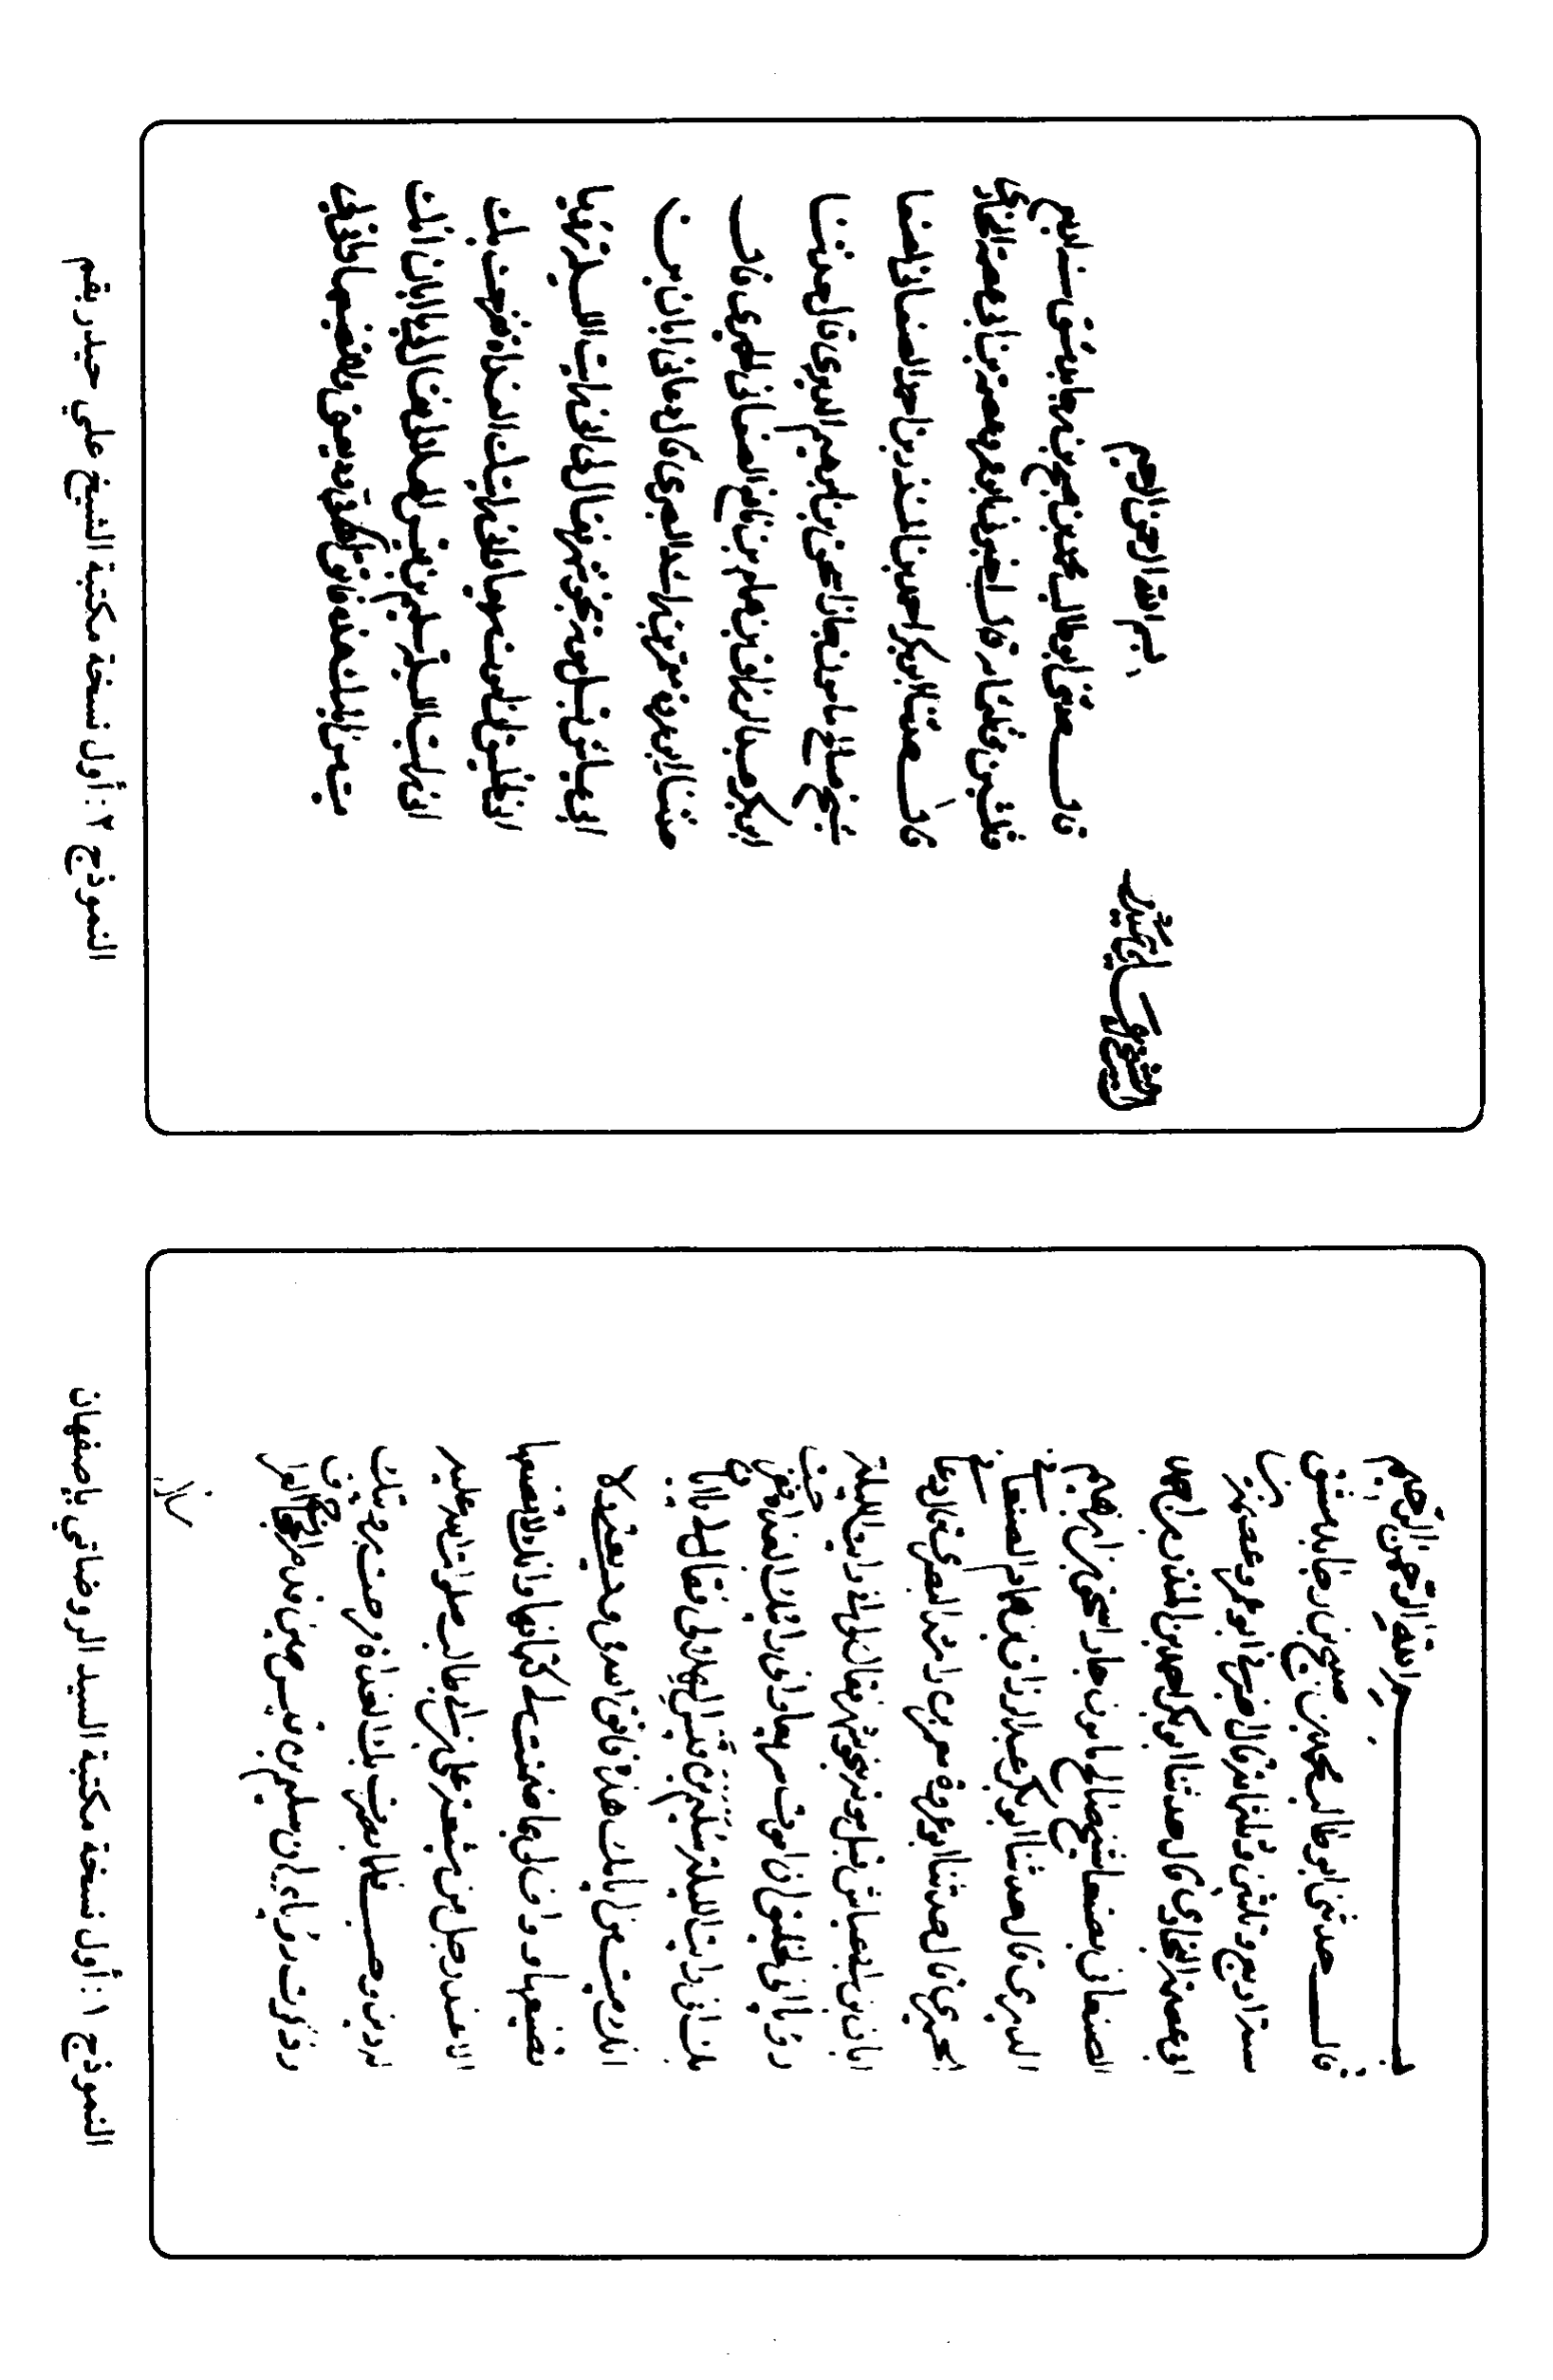 بسم الله الرحمن الرحيم
قال حدثنى ابو طالب محمد بن صبيح بن رجا بدمشق
سنة اربع وثلثين وثلثمائة قال اخبرنى ابو عمرو عصمة بن
ابى عصمة البخارى قال حدثنا ابو بكر احمد بن المنذر بن احمد
الصنعانى بصنعا شيخ صالح مامون جار اسحق بن ابراهيم
الدبرى قال حدثنا ابو بكر عبد الرزاق بن همام الصنعانى
الحميرى قال حدثنا ابو عروة معمر بن راشد البصرى قال دعا
ابان بن ابى عياش قبل موته بنحو شهر فقال لى انى رايت الليلة
رؤيا انى لخليق ان اموت سريعا وانى رايتك الغداة ففرحت
بك انى رايت الليلة سليم بن قيس الهلالى فقال لى يا ابان
انك ميت من ايامك هذه فاتق الله فى وديعتى ولا
تضيعها وف لى بما ضمنت من كتمانها ولا تضعها
الا عند رجل من شيعة على بن ابى طالب صلوات الله عليه
له دين وحسب فلما بصرت بك الغداة فرحت برؤيتك
وذكرت رؤياى سليم بن قيس حين قدم الحجاج العراق
النموذج ١: أول نسخة مكتبة السيد الروضاتي بإصفهان
بسم الله الرحمن الرحيم
قال حدثنى ابو طالب محمد بن صبيح بن رجا بدمشق سنة اربع
وثلثين وثلثمائة قال اخبرنى ابو عمرو عصمة بن ابى عصمة البخارى
قال حدثنا ابو بكر احمد بن المنذر بن احمد الصنعانى بصنعا
شيخ صالح مامون جار اسحق بن ابراهيم الدبرى قال حدثنا
ابو بكر عبد الرزاق بن همام بن نافع الصنعانى الحميرى قال
حدثنا ابو عروة معمر بن راشد البصرى قال دعانى ابان بن
ابى عياش قبل موته بنحو شهر فقال لى انى رايت الليلة رؤيا
انى لخليق ان اموت سريعا وانى رايتك الغداة ففرحت بك
انى رايت الليلة سليم بن قيس الهلالى فقال لى يا ابان انك
ميت من ايامك هذه فاتق الله فى وديعتى ولا تضيعها وف لى
النموذج ٢: أول نسخة مكتبة الشيخ علي حيدر بقم